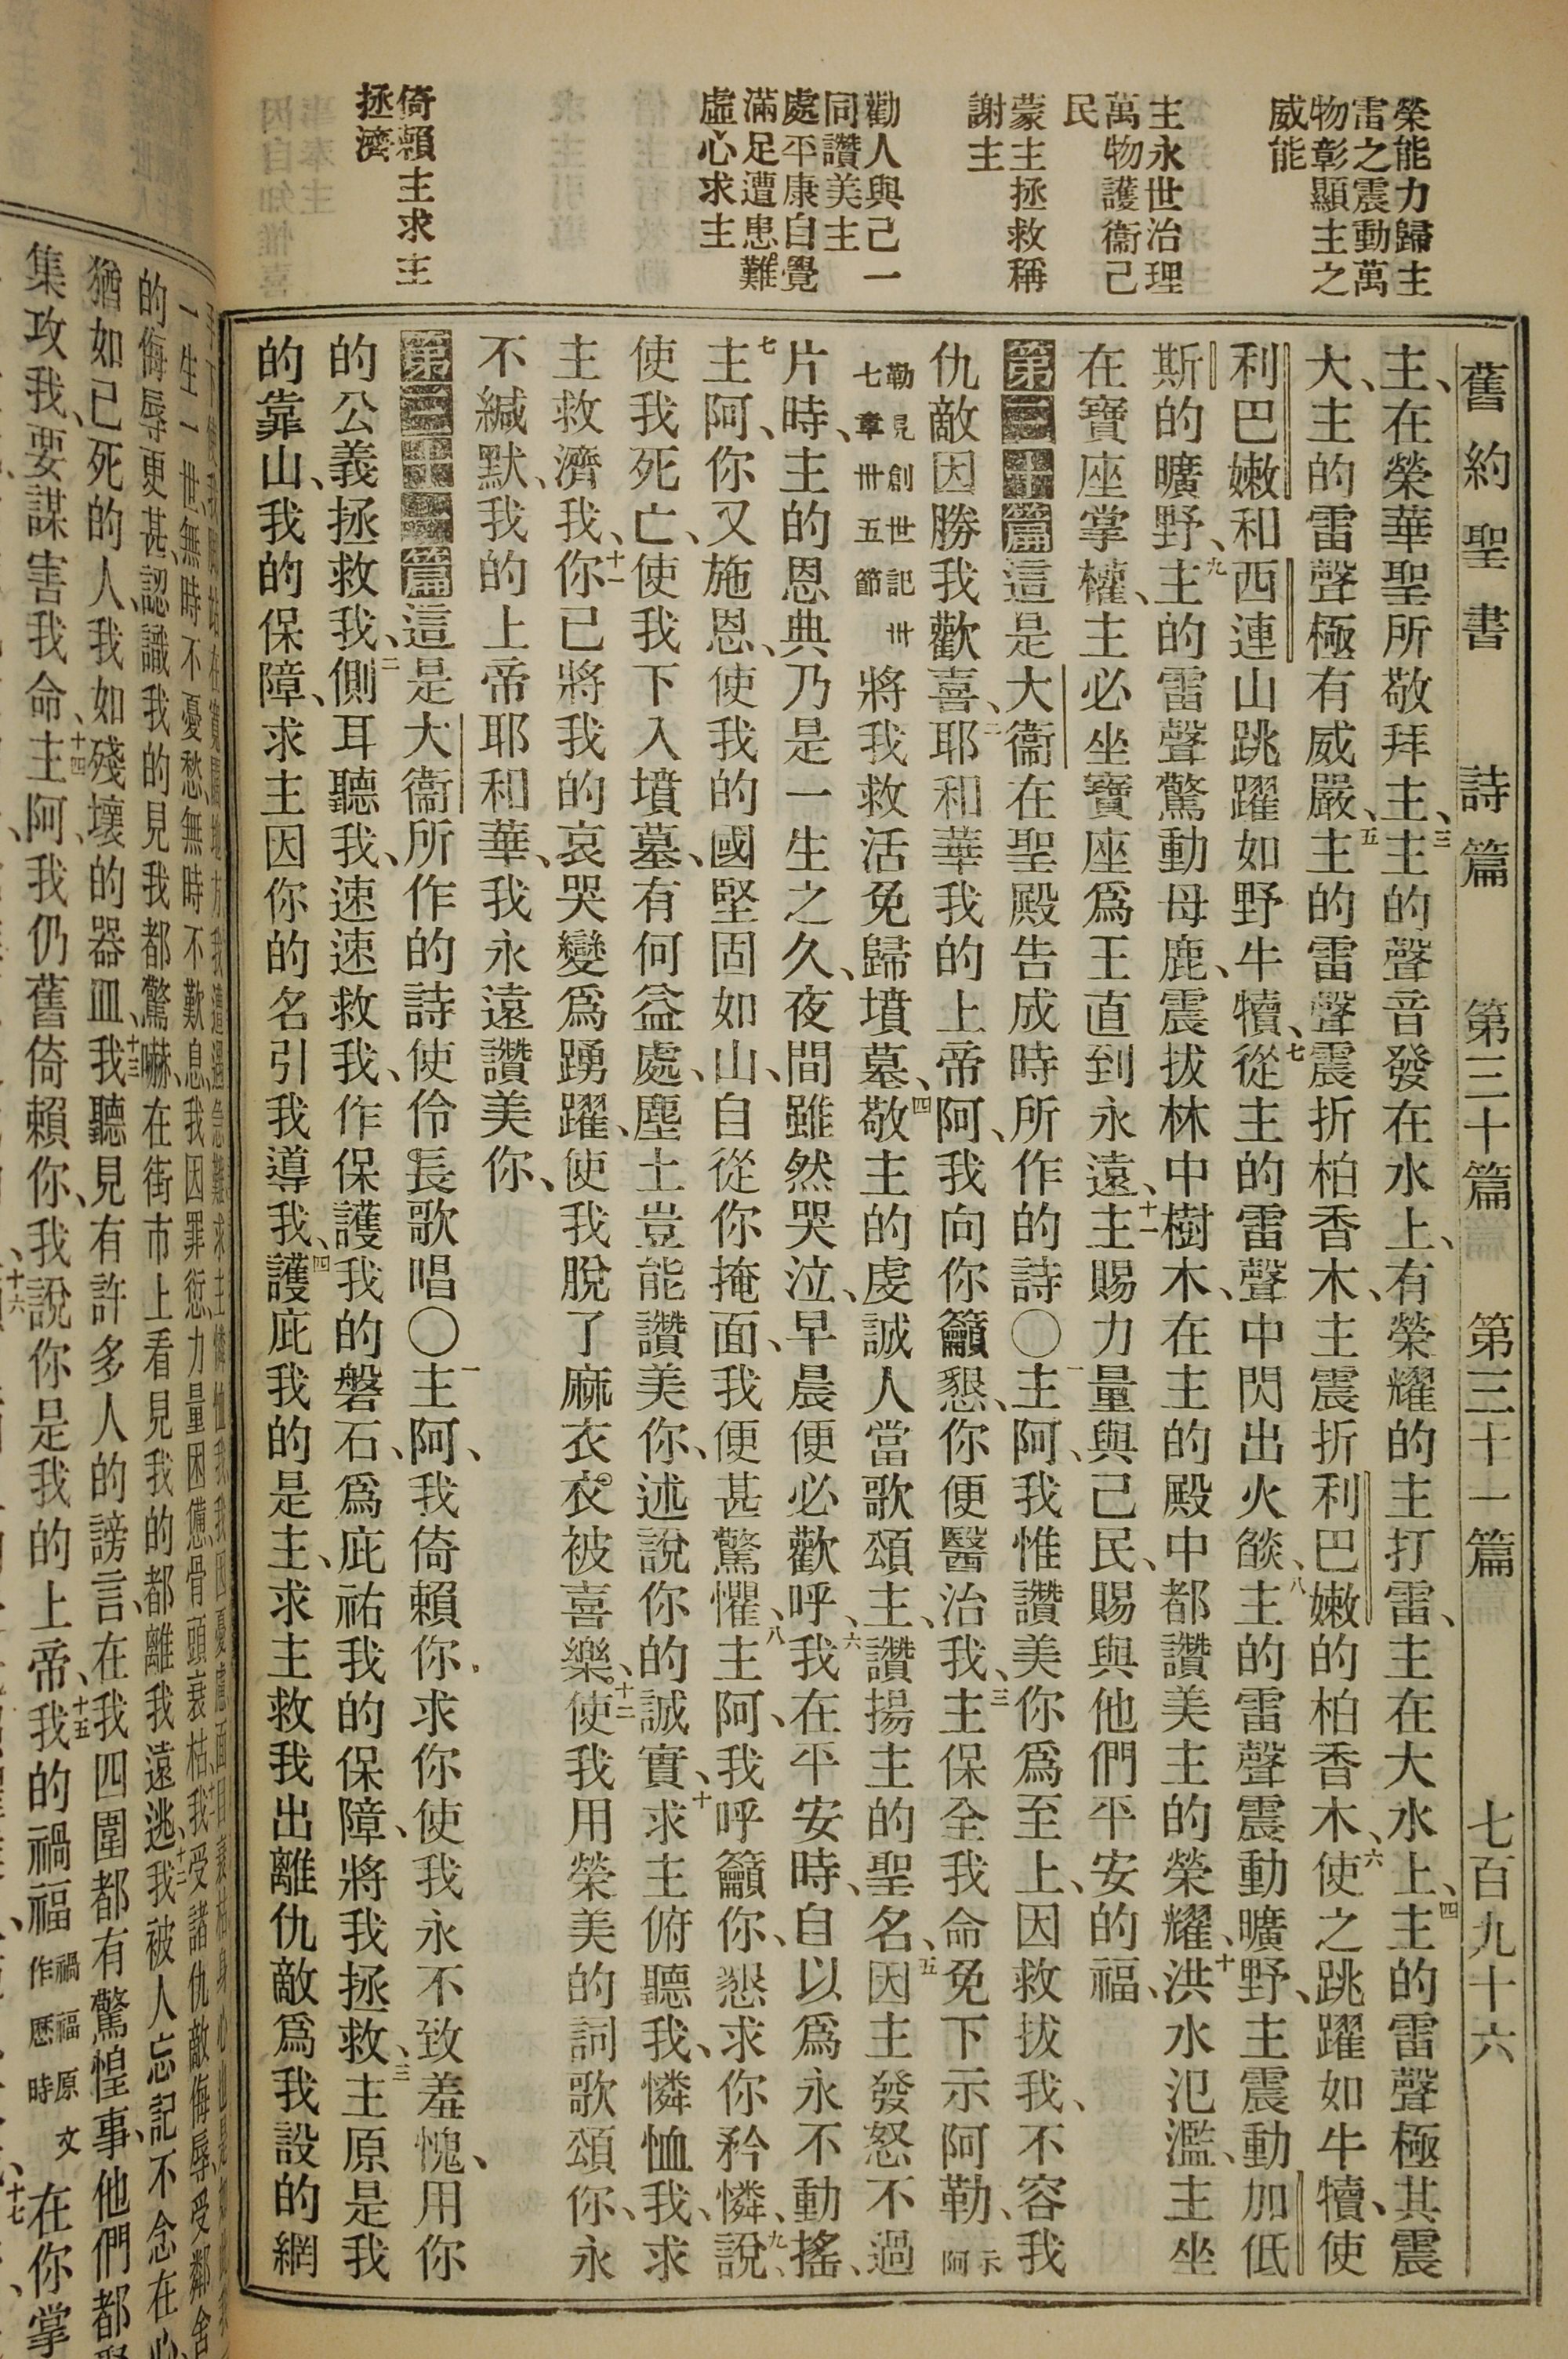 舊約聖書 詩篇 第三十篇 第三十一篇 七百九十六
榮能力歸主
雷之震動萬
物彰顯主之
威能
主永世治理
萬物護衞己
民
蒙主拯救稱
謝主
勸人與己一
同讚美主
處平康自覺
滿足遭患難
虛心求主
倚賴主求主
拯濟
主、在榮華聖所敬拜主、三主的聲音發在水上、有榮耀的主打雷、主在大水上、四主的雷聲極其震
大、主的雷聲極有威嚴、五主的雷聲震折柏香木、主震折利巴嫩的柏香木、六使之跳躍如牛犢、使
利巴嫩和西連山跳躍如野牛犢、七從主的雷聲中閃出火燄、八主的雷聲震動曠野、主震動加低
斯的曠野、九主的雷聲驚動母鹿、震拔林中樹木、在主的殿中都讚美主的榮耀、十洪水氾濫、主坐
在寶座掌權、主必坐寶座爲王直到永遠、十一主賜力量與己民、賜與他們平安的福、
第三十篇這是大衞在聖殿告成時所作的詩〇一主阿、我惟讚美你爲至上、因救拔我、不容我
仇敵因勝我歡喜、二耶和華我的上帝阿、我向你籲懇、你便醫治我、三主保全我命免下示阿勒、示阿
勒見創世記卅七章卅五節將我救活免歸墳墓、四敬主的虔誠人當歌頌主、讚揚主的聖名、五因主發怒不過
片時、主的恩典乃是一生之久、夜間雖然哭泣、早晨便必歡呼、六我在平安時、自以爲永不動搖、
七主阿、你又施恩、使我的國堅固如山、自從你掩面、我便甚驚懼、八主阿、我呼籲你、懇求你矜憐、九說、
使我死亡、使我下入墳墓、有何益處、塵土豈能讚美你、述說你的誠實、十求主俯聽我、憐恤我、求
主救濟我、十一你已將我的哀哭變爲踴躍、使我脫了麻衣、衣被喜樂、十二使我用榮美的詞歌頌你、永
不緘默、我的上帝耶和華、我永遠讚美你、
第三十一篇這是大衞所作的詩使伶長歌唱〇一主阿、我倚賴你、求你使我永不致羞愧、用你
的公義拯救我、二側耳聽我、速速救我、作保護我的磐石、爲庇祐我的保障、將我拯救、三主原是我
的靠山、我的保障、求主因你的名引我導我、四護庇我的是主、求主救我出離仇敵爲我設的網
的侮辱更甚、認識我的見我都驚嚇、在街市上看見我的都離我遠逃、十二我被人忘記不念在心
猶如已死的人、我如殘壞的器皿、十三我聽見有許多人的謗言、在我四圍都有驚惶事、他們都
集攻我、要謀害我命、十四主阿、我仍舊倚賴你、我說你是我的上帝、十五我的禍福禍福原文作歷時在你掌